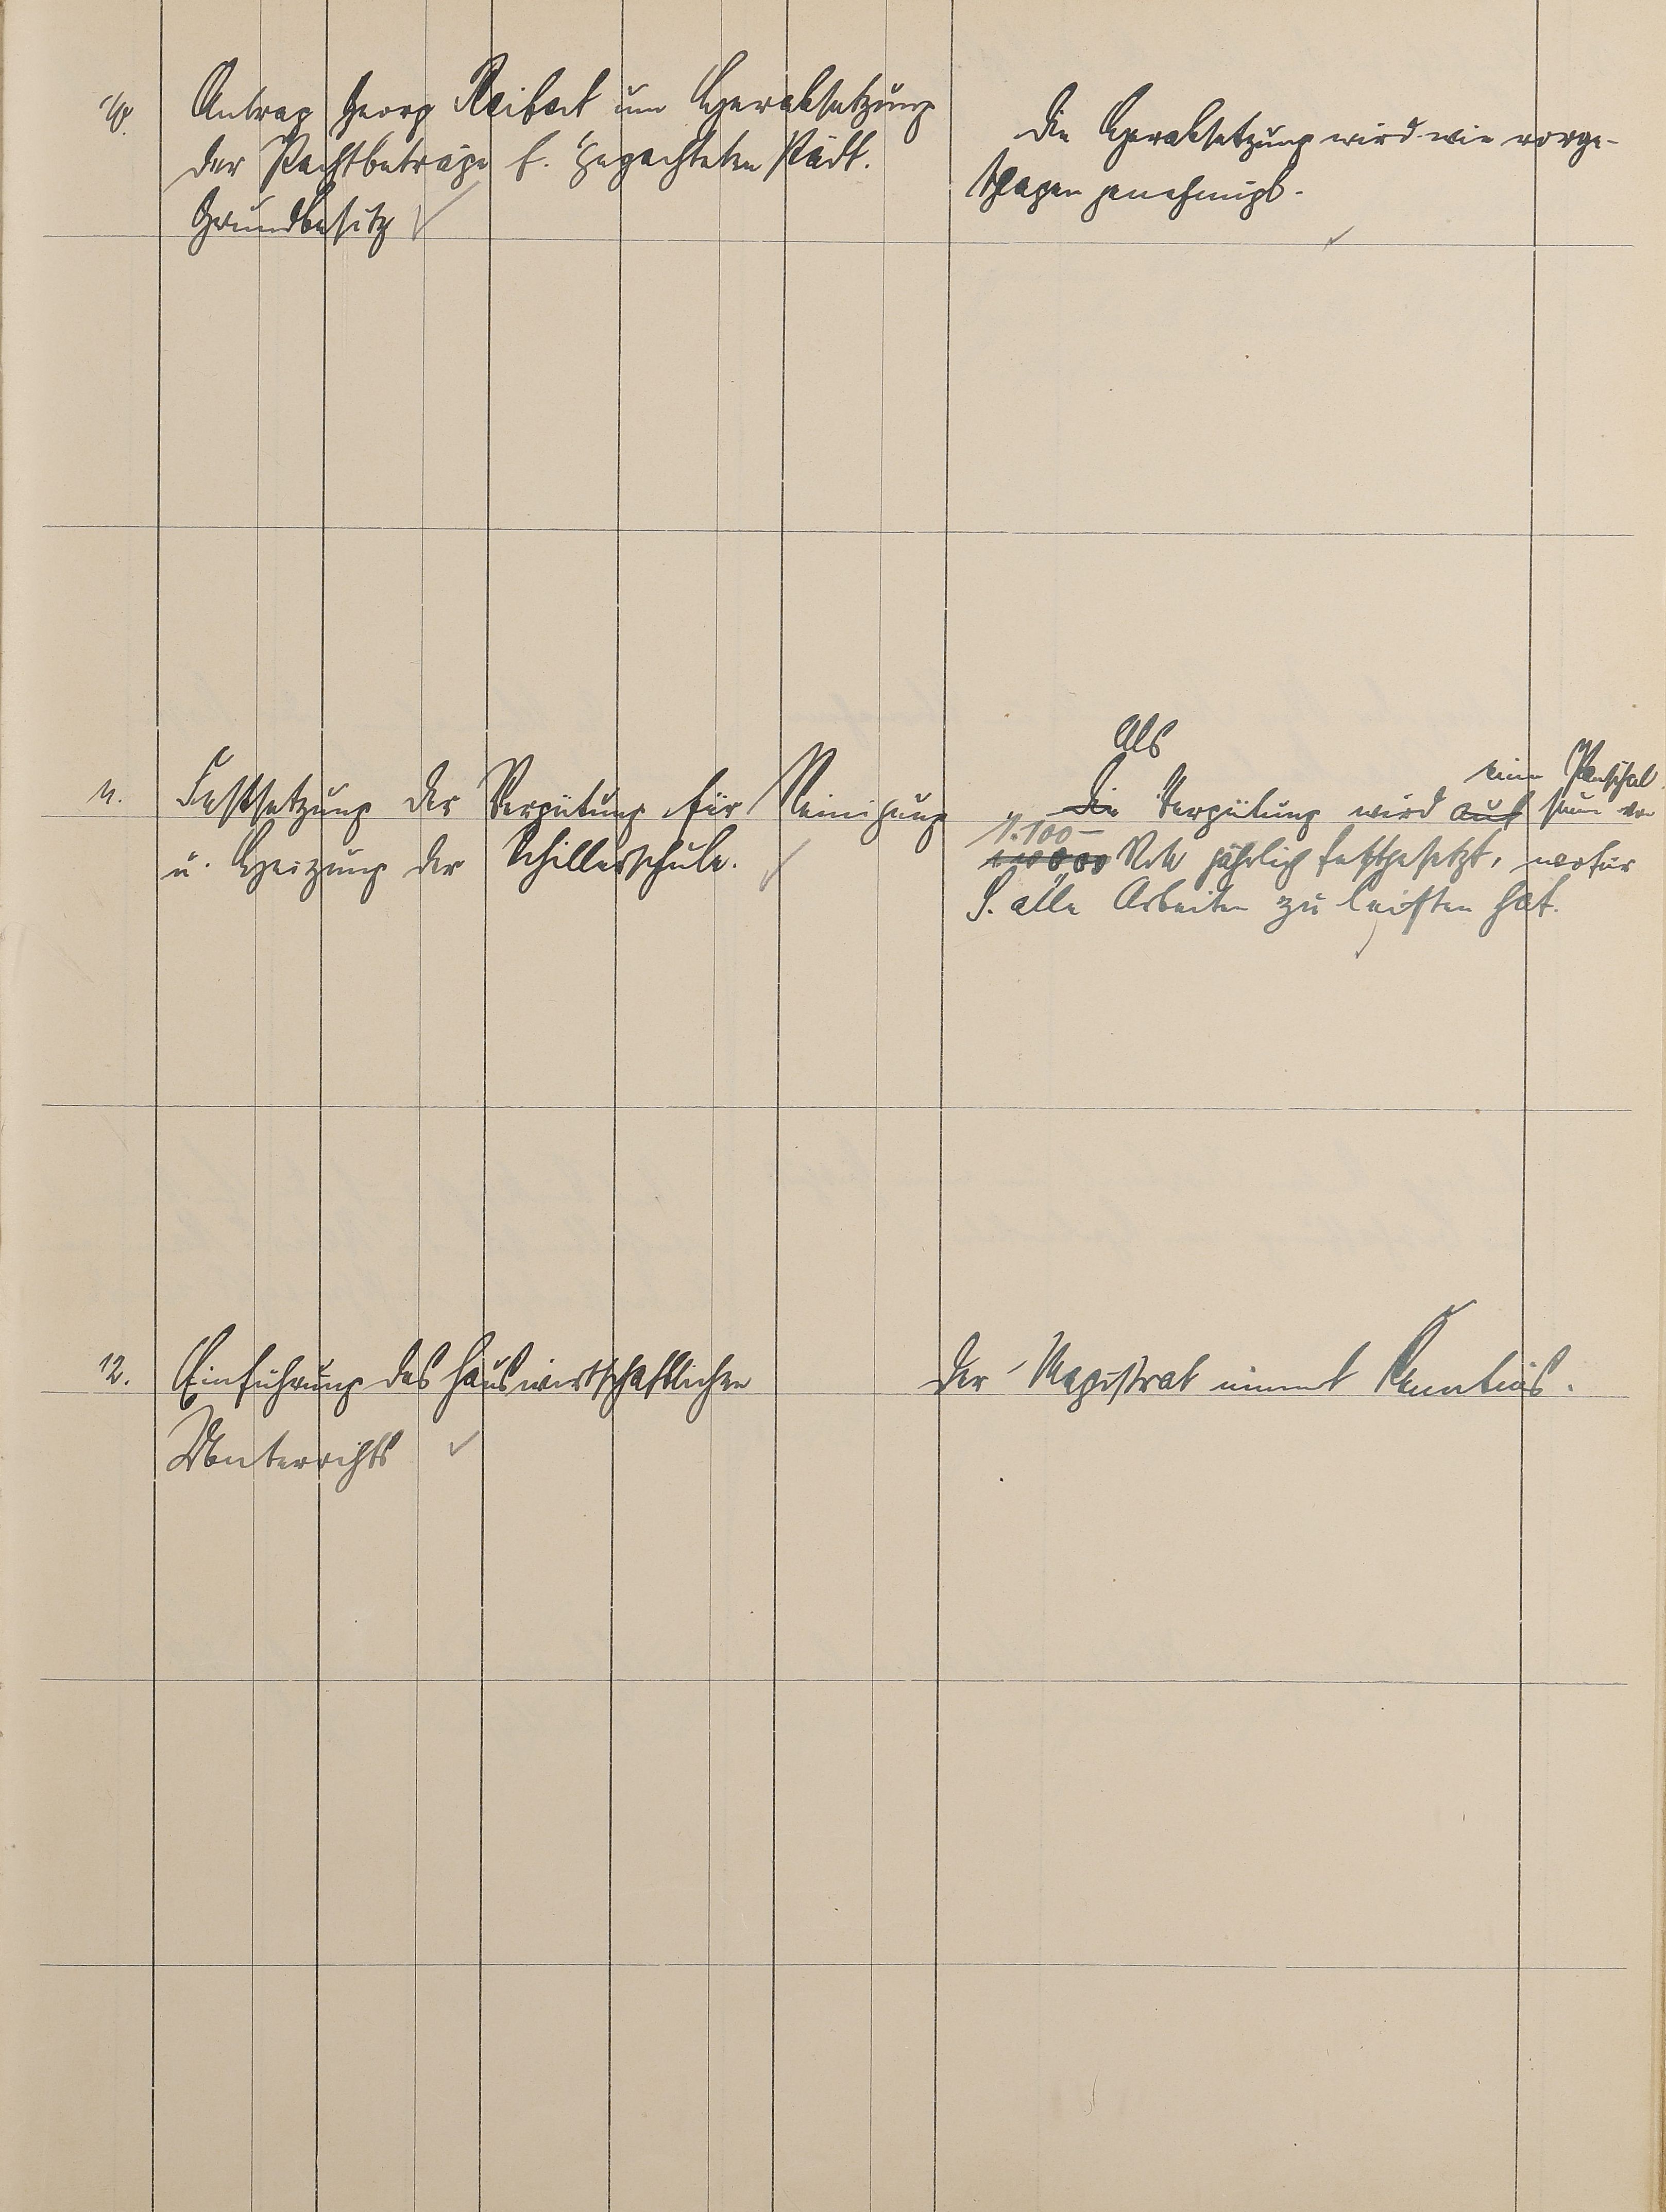 10.
Antrag Georg Reibert um Herabsetzung
der Pachtbeträge f. gepachteten städt.
Grundbesitz
Die Herabsetzung wird wie vorge-
schlagen genehmigt.
11.
Festsetzung der Vergütung für Reinigung
u. Heizung der Schillerschule.
Als
eine Pauschal
Die Vergütung wird auf sum von
1.100.-
Mk jährlich festgesetzt, wofür
S. alle Arbeiten zu leisten hat.
12.
Einführung des hauswirtschaftlichen
Unterrichts
Der Magistrat nimmt Kenntnis.